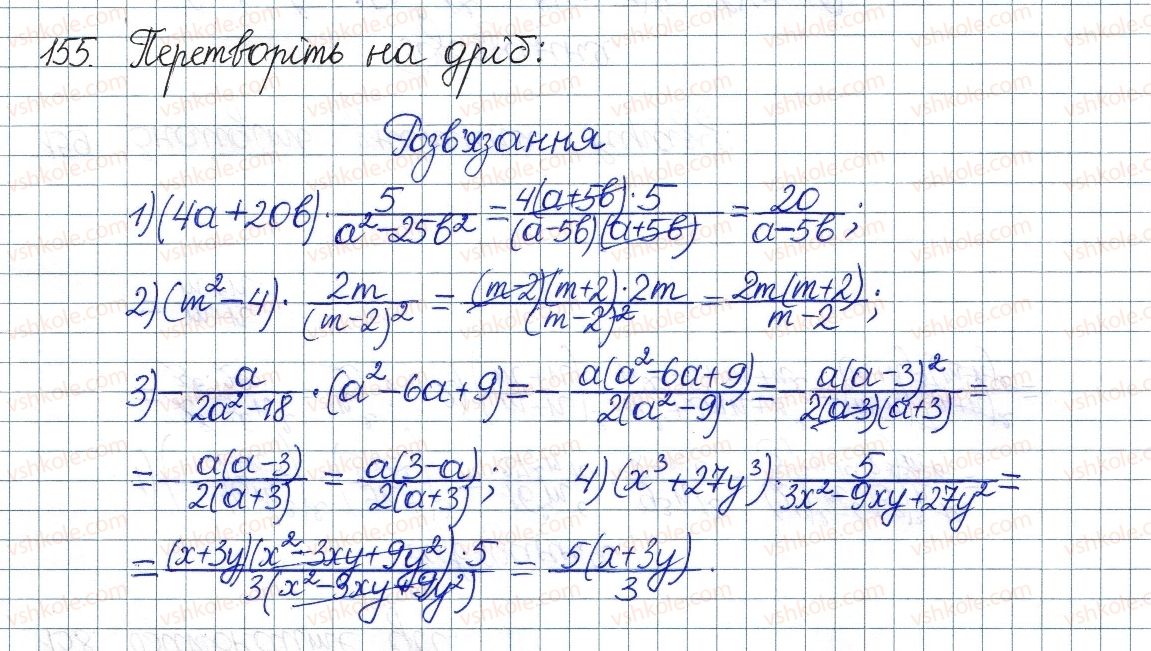 155. Перетворіть на дріб:
Розв'язання
1) (4a+20b) · 5/(a²-25b²) = 4(a+5b)·5/((a-5b)(a+5b)) = 20/(a-5b);
2) (m²-4) · 2m/(m-2)² = (m-2)(m+2)·2m/(m-2)² = 2m(m+2)/(m-2);
3) - a/(2a²-18) · (a²-6a+9) = - a(a²-6a+9)/(2(a²-9)) = - a(a-3)²/(2(a-3)(a+3)) =
= - a(a-3)/(2(a+3)) = a(3-a)/(2(a+3)); 4) (x³+27y³) · 5/(3x²-9xy+27y²) =
= (x+3y)(x²-3xy+9y²)·5/(3(x²-3xy+9y²)) = 5(x+3y)/3.
vshkole.com